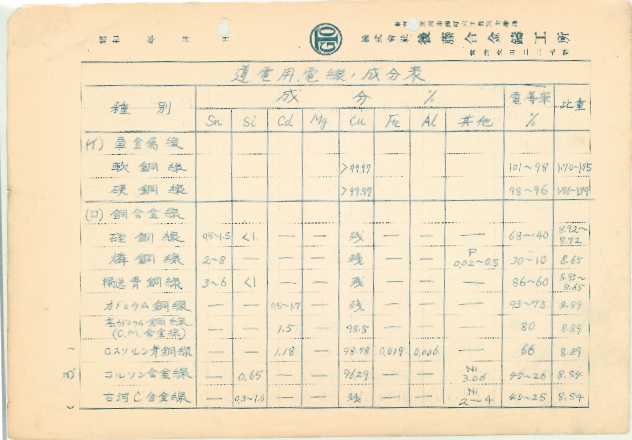 昭和 年 月 日
株式會社 後藤合金鑄工所
導電用電線ノ成分表
種別 成分 % 電導率 % 比重
Sn Si Cd Mg Cu Fe Al 其他
(イ) 單金属線
軟銅線 >99.97 101~98
硬銅線 >99.97 98~96
(ロ) 銅合金線
硅銅線 0.5~1.5 <1. — — 残 — — — 68~40 8.92~8.72
燐銅線 2~8 — — — 残 — — P 0.02~0.5 30~10 8.65
青銅線 3~6 <1 — — 残 — — — 86~60
カドミウム銅線 — — 0.5~1.7 — 残 — — — 93~73 8.89
銅線 (C.M.合金線) — — 1.5 — 98.5 — — — 80 8.89
ロスソルン青銅線 — — 1.18 — 98.78 0.019 0.006 — 66 8.89
コルソン合金線 — 0.65 — — 96.29 — — Ni 3.06 45~26 8.84
古河C合金線 — 0.3~1.0 — — 残 — — Ni 2~4 45~25 8.84